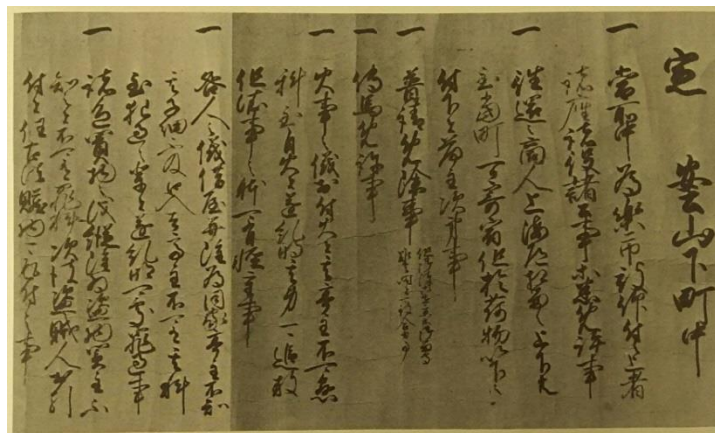 定 安土山下町中
一 当所中為楽市被仰付之上者
諸座諸役諸公事等悉免許事
一 往還之商人上海道相留之上下共
至当町可寄宿但於荷物以下之
付下者荷主次第事
一 普請免除事
一 伝馬免許事
一 火事之儀於付火者其亭主不可懸
科至自火者遂糺明其身可追放
但依事之躰可有軽重事
一 咎人之儀借屋并雖為同家亭主不知
其子細不及口入者亭主不可有其科
至犯過之輩者遂糺明可処罪過事
一 諸色買物之儀縦雖為盗物買主不
知之者不可有罪科次彼盗賊人於引
付者任古法贓物可返付之事